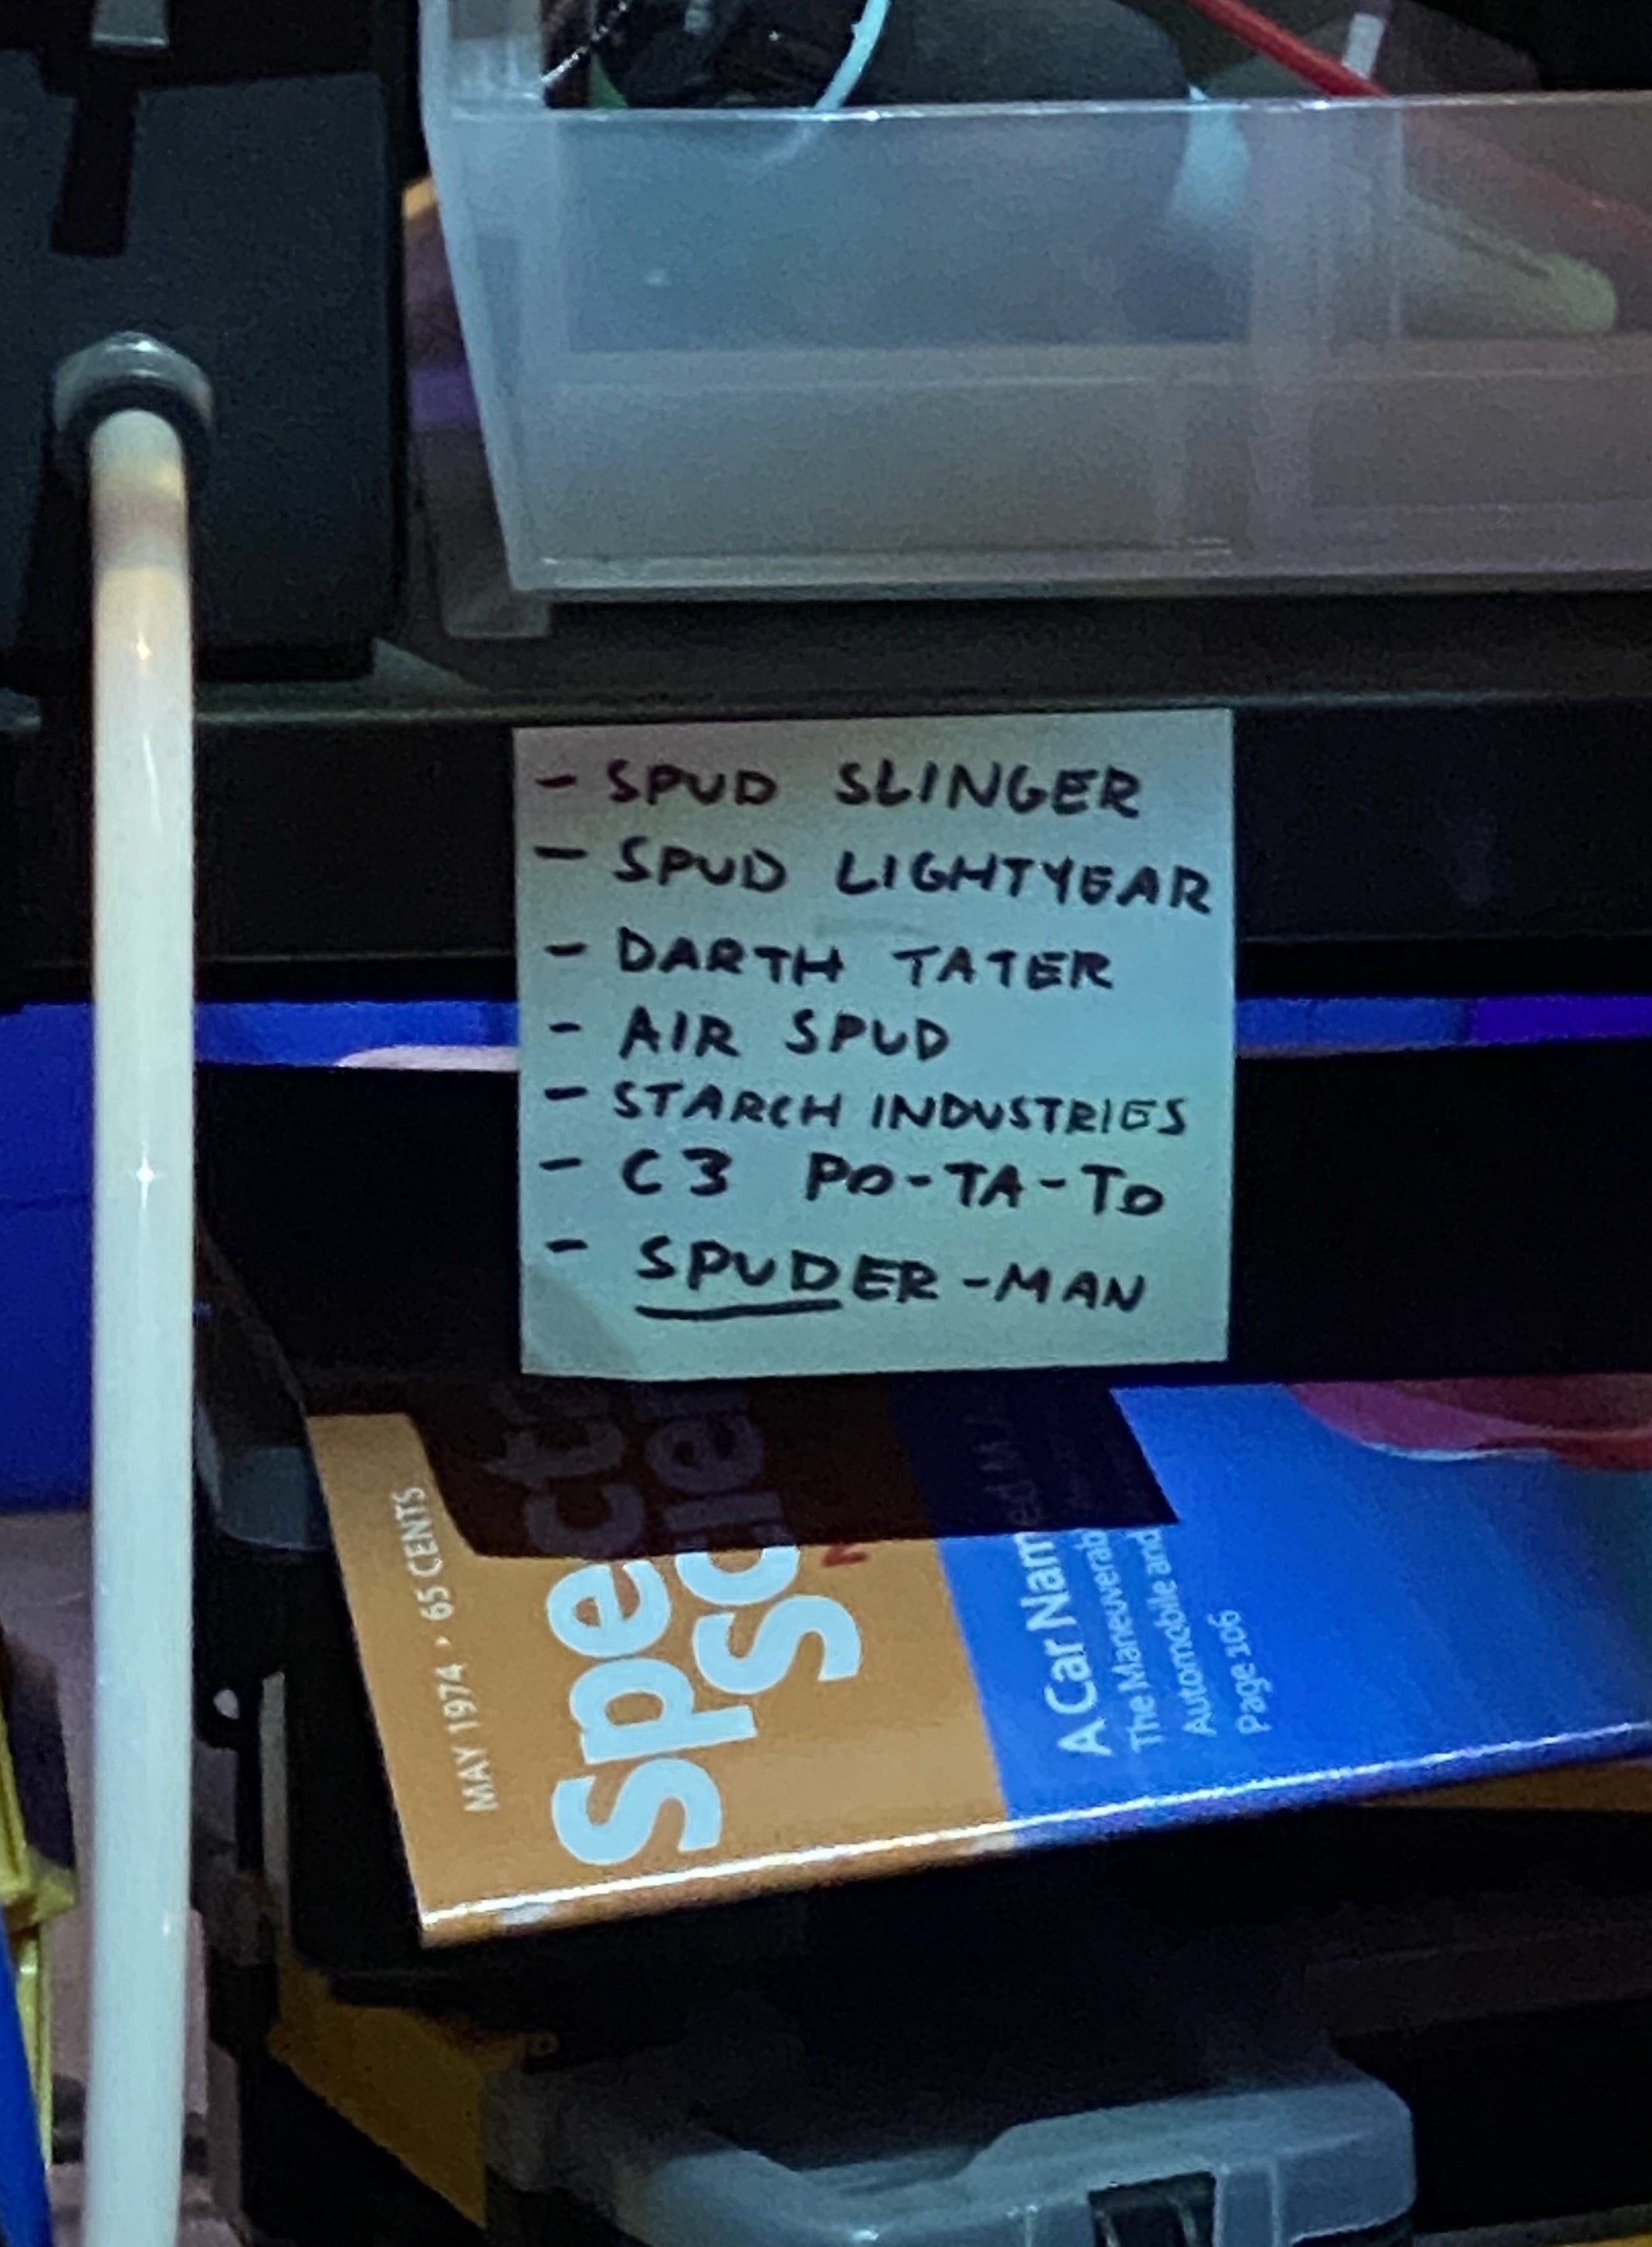 - SPUD SLINGER
- SPUD LIGHTYEAR
- DARTH TATER
- AIR SPUD
- STARCH INDUSTRIES
- C3 PO-TA-TO
- SPUDER-MAN
MAY 1974 • 65 CENTS
A Car
The
Automobile and
Page 106